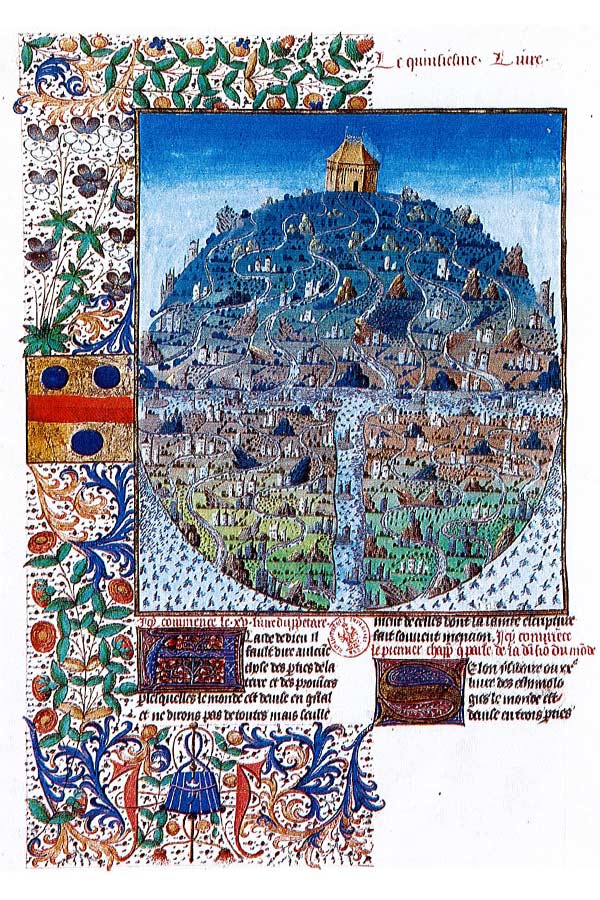 Le quinsiesme . Liure .
Icy commence le .xv. liure
A laide de dieu il
fault dire aulcune
chose des pties de la
terre et des prouices
p lesquelles le monde est deuise en gñal
et ne dirons pas de toutes mais seulle
ment de celles dont la sainte escripture
fait souuent mencion. Icy comēce
le premier chap̄ q̄ parle de la du mōde
Selon ysidoire ou
liure des ethimolo
gies le monde est
deuise en trois pties